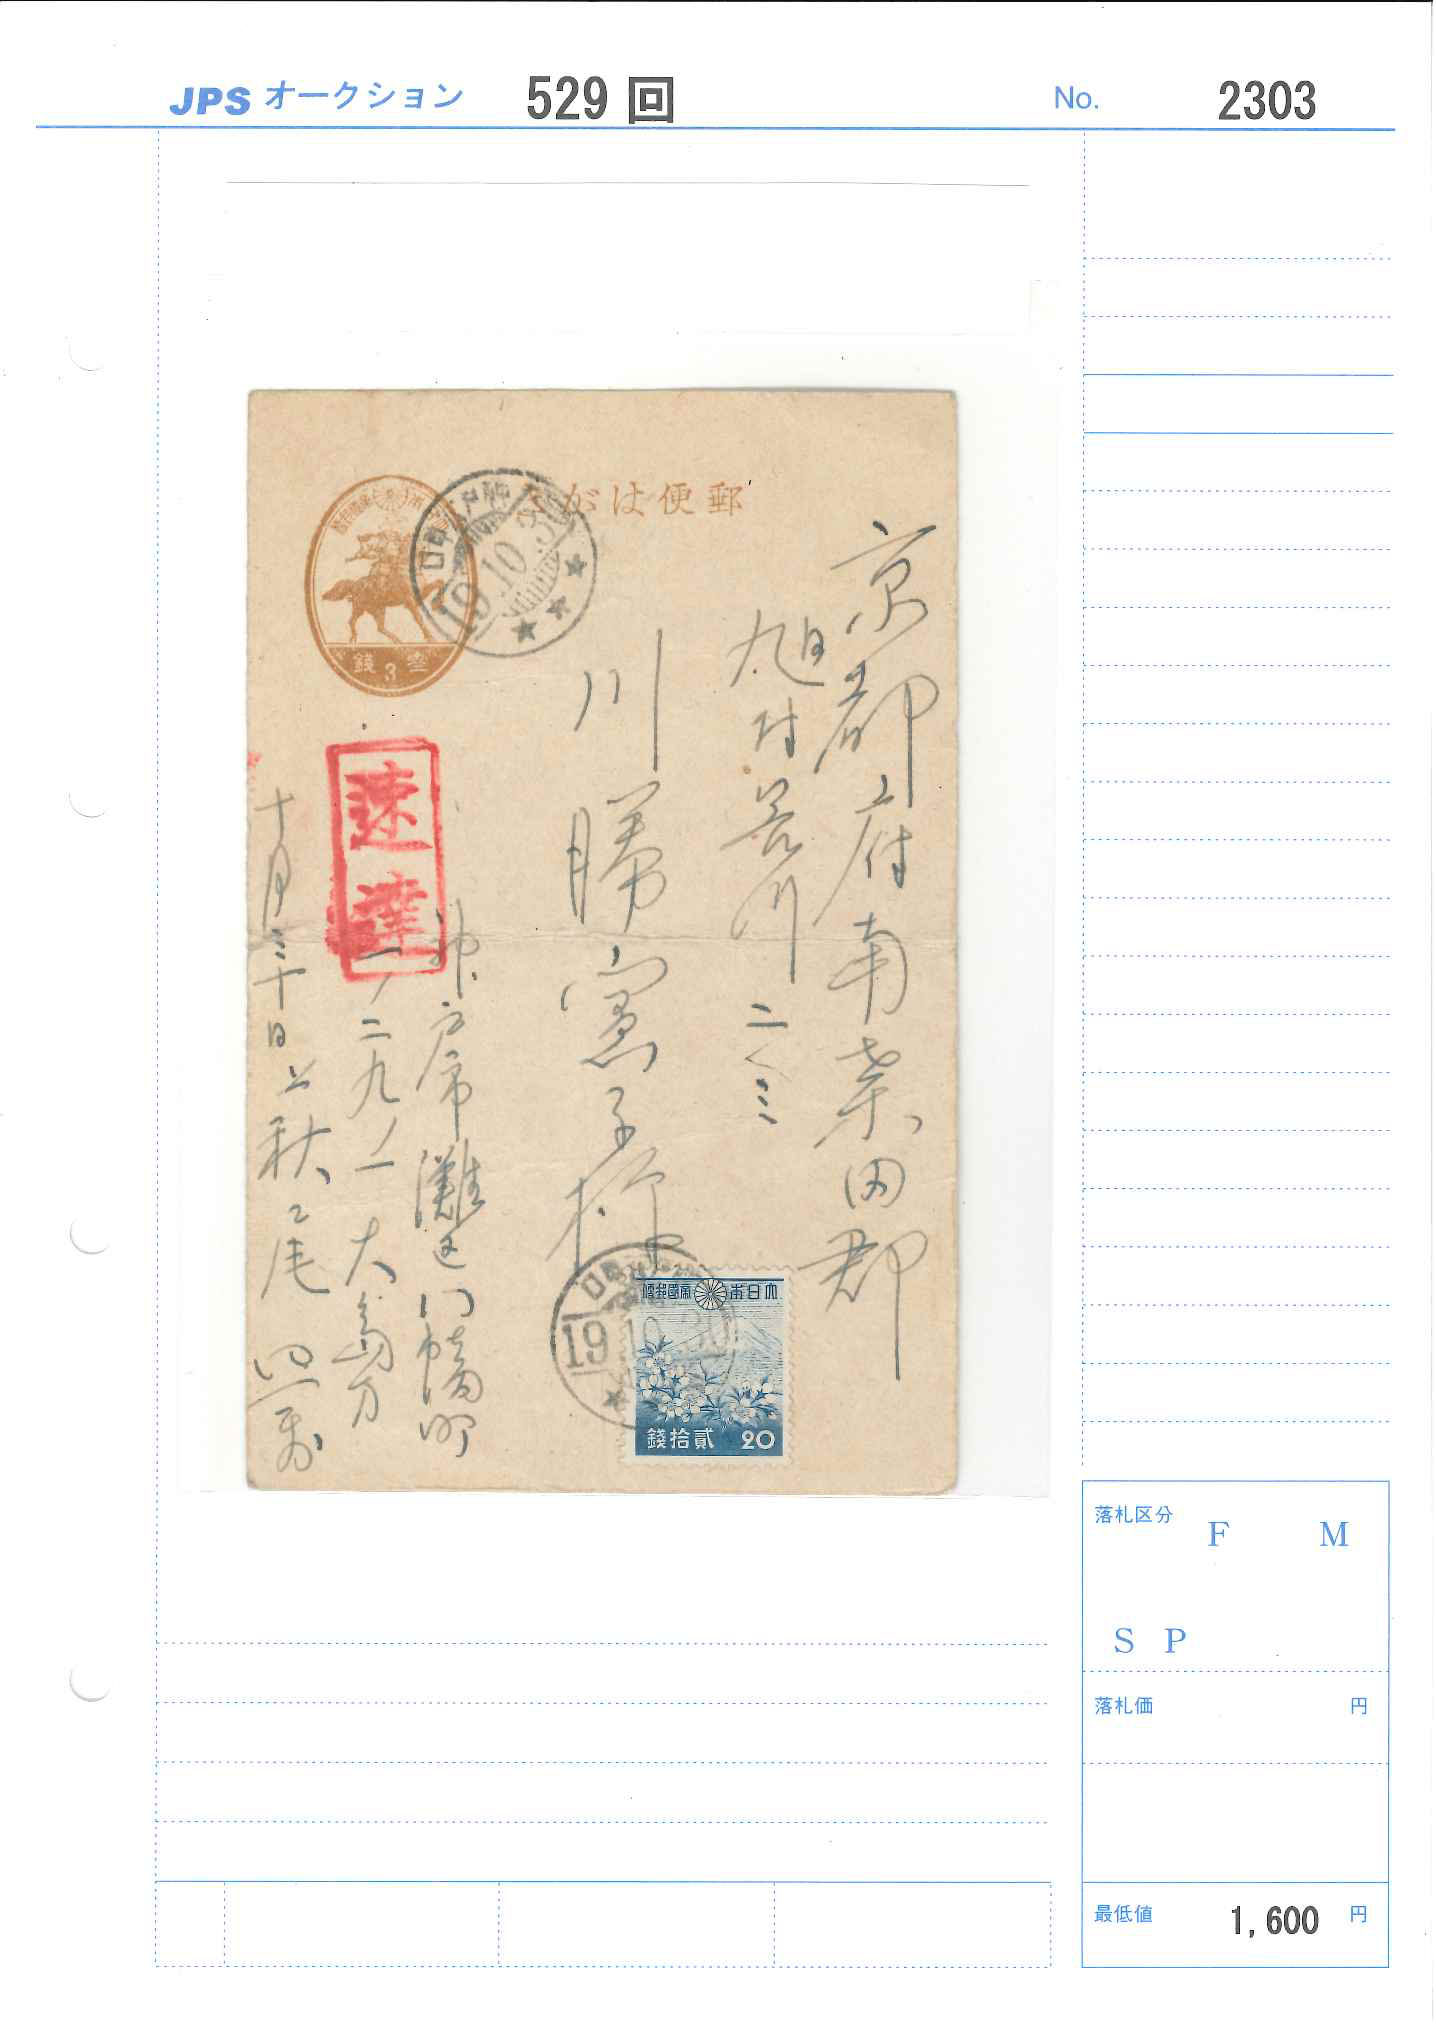 JPS オークション 529 回 No. 2303
郵便はがき
参 3 銭
19.10.30
速達
京都府南桑田郡
旭村
川勝憲子様
神戸市灘区八幡町
一ノ二九ノ一 大島方
十月三十日
19.10.30
大日本帝國郵便
貳拾錢 20
落札区分 F M
S P
落札価 円
最低値 1,600 円